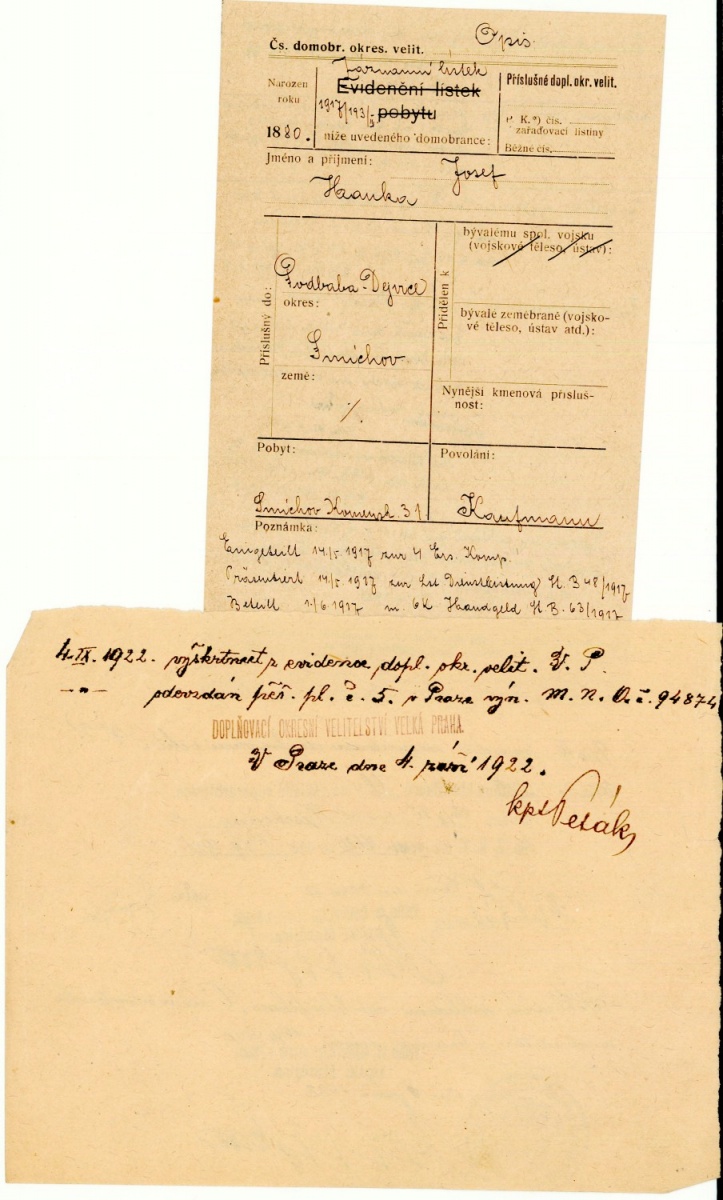 Opis
Čs. domobr. okres. velit.
Záznamní lístek
Evidenční lístek
pobytu
níže uvedeného domobrance:
Narozen
roku
1880.
Příslušné dopl. okr. velit.
K. čís.
zařaďovací listiny
Běžné čís.
Jméno a příjmení: Josef
Haanka
Příslušný do:
Podbaba-Dejvice
okres:
Smíchov
země:
%
Přidělen k
bývalému spol. vojsku
(vojskové těleso, ústav):
bývalé zeměbraně (vojsko-
vé těleso, ústav atd.):
Nynější kmenová přísluš-
nost:
Pobyt:
Smíchov Komensk. 31
Povolání:
Kaufmann
Poznámka:
Eingeteilt 14/5 1917 zur 4 Ers. Komp.
Präsentiert 14/5 1917 zur Lst Dienstleistung St. B 48/1917
Beteilt 1/6 1917 m. 6K Handgeld St B. 63/1917
4.IX.1922. vyškrtnut z evidence dopl. okr. velit. V. P.
—"— odevzdán pěš. pl. č. 5. v Praze výn. M. N. O. č. 94874
DOPLŇOVACÍ OKRESNÍ VELITELSTVÍ VELKÁ PRAHA.
V Praze dne 4. září 1922.
kpt Pešák